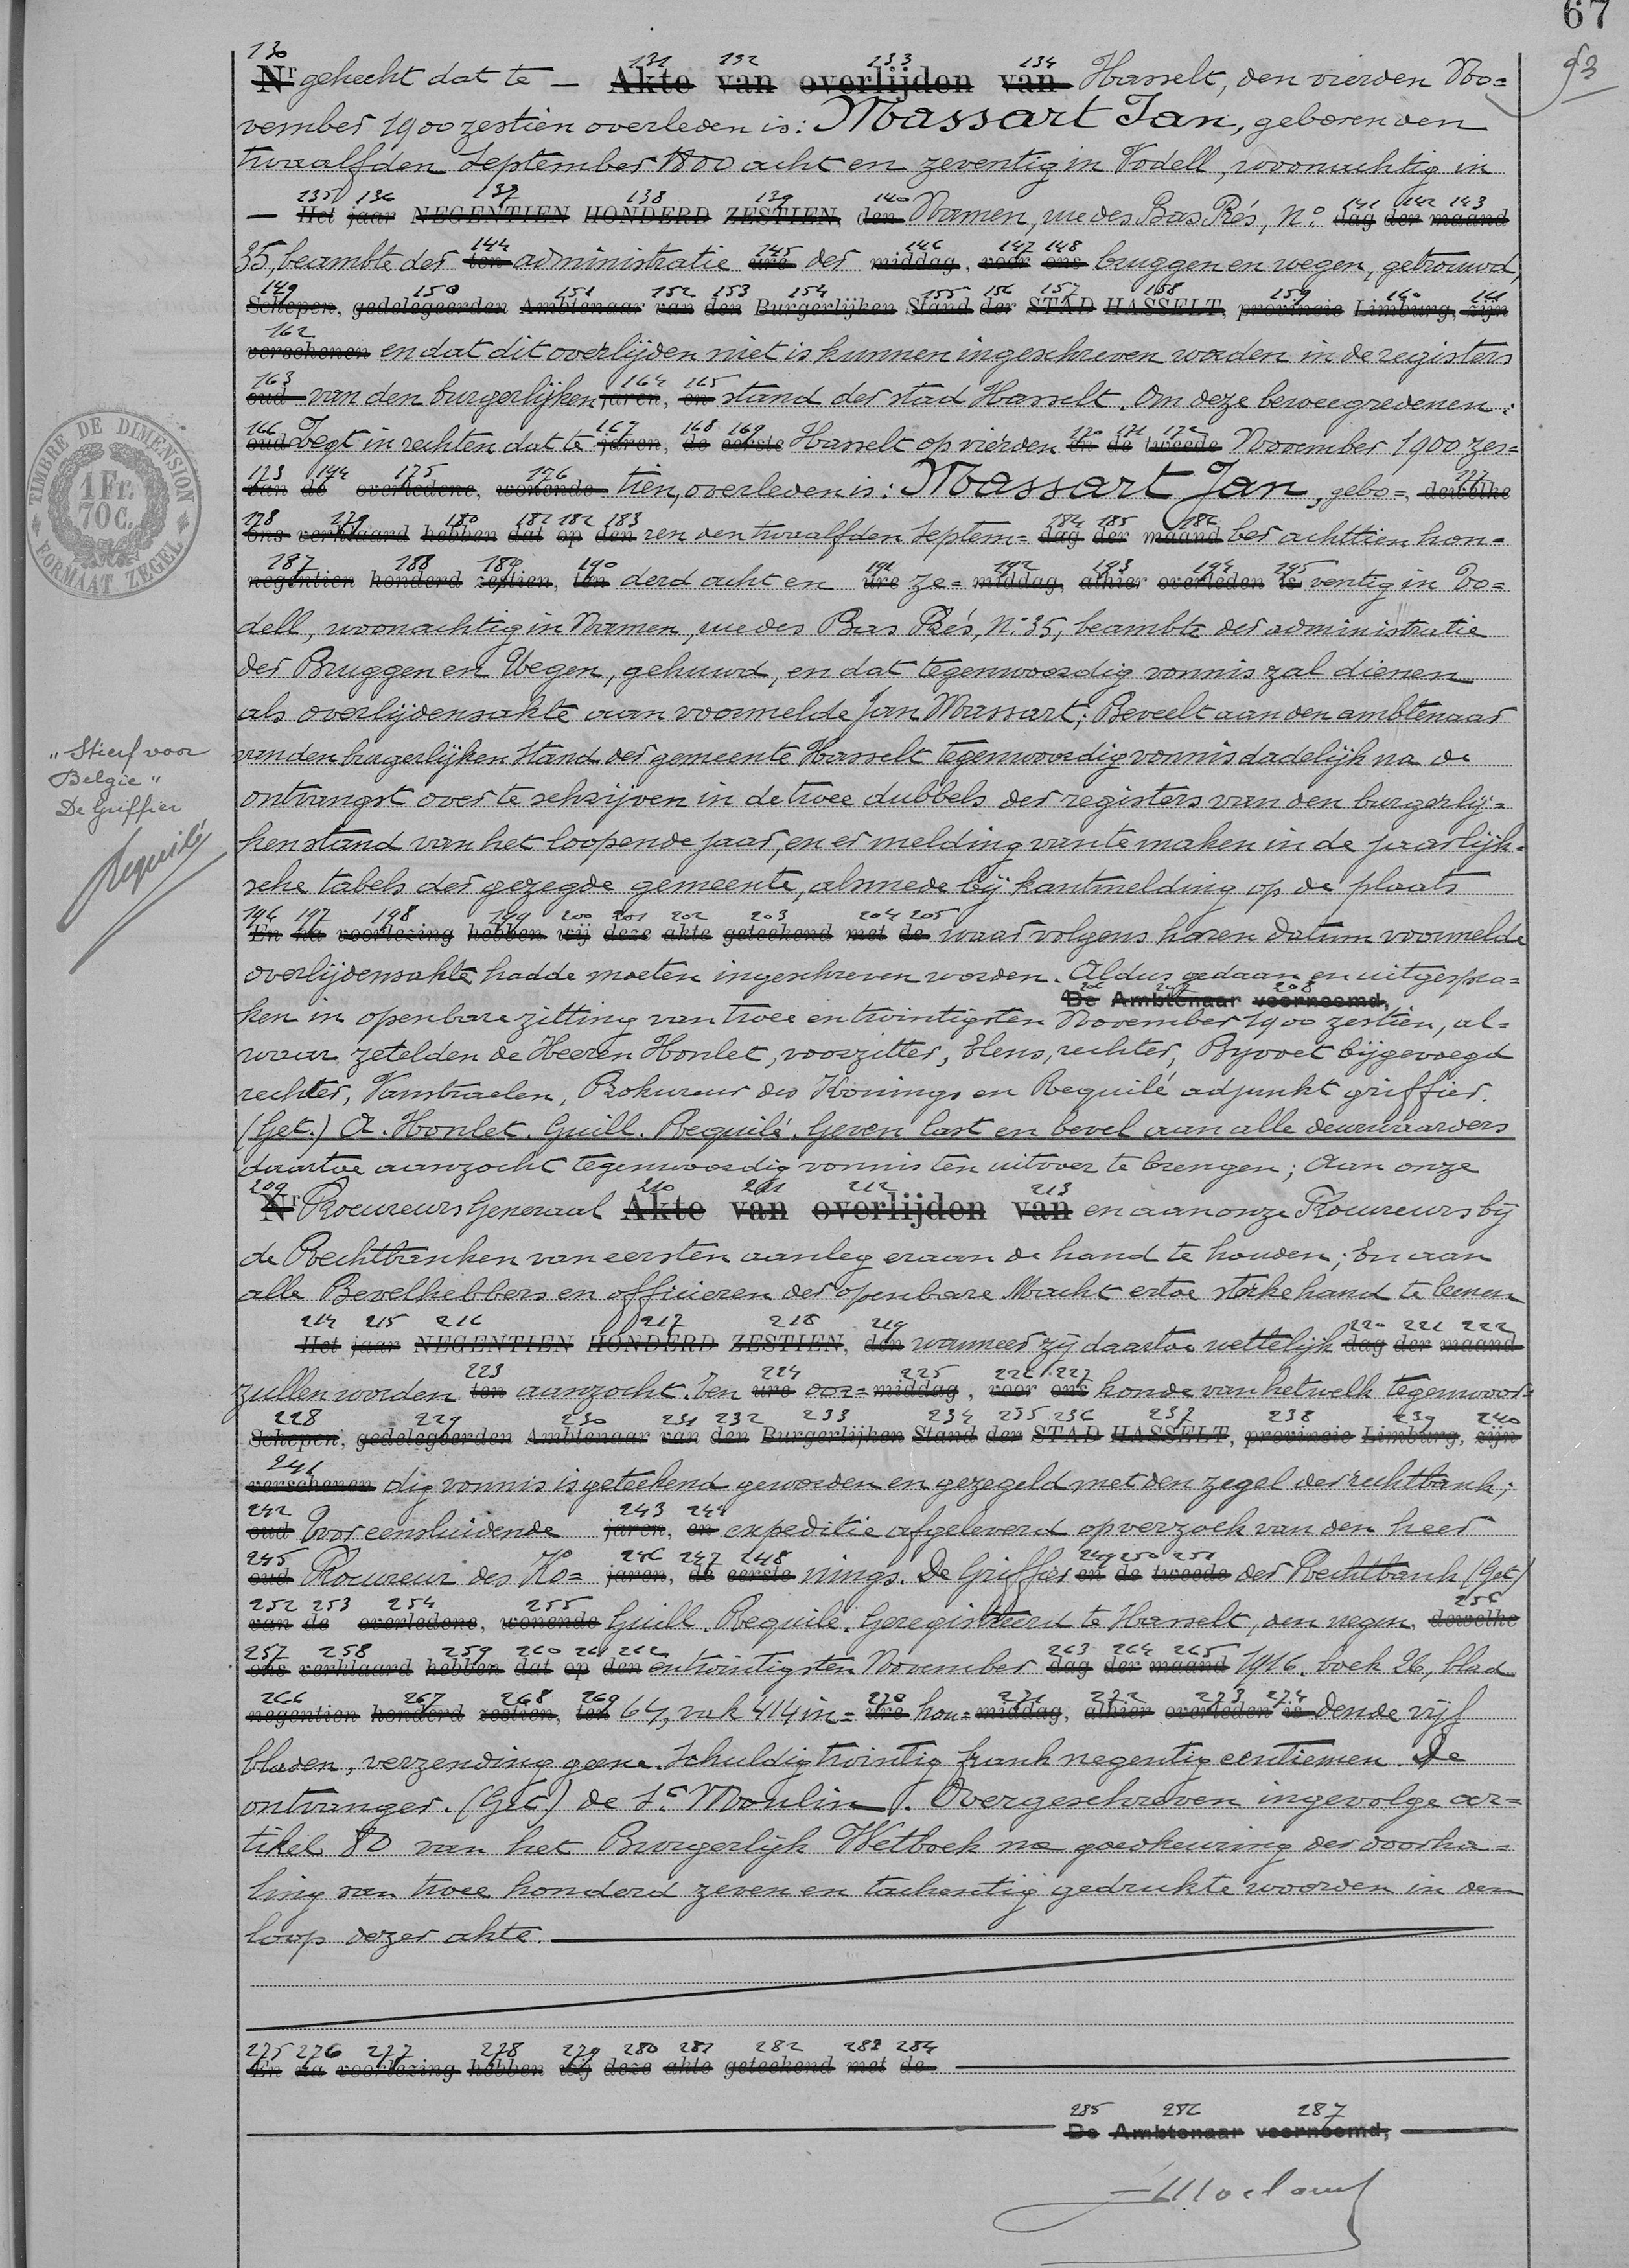 67
93
130 131 132 133 134
Nr gehecht dat te — Akte van overlijden van Hasselt, den vierden No=
vember 1900 zestien overleden is: Massart Jan, geboren den
twaalfden September 1800 acht en zeventig in Vodell, woonachtig in
135 136 137 138 139 140 141 142 143
— Het jaar NEGENTIEN HONDERD ZESTIEN, den Namen, rue des Bas Prés, N.º dag der maand
144 145 146 147 148
35, beambte der ten administratie ure der middag, voor ons bruggen en wegen, getrouwd,
149 150 151 152 153 154 155 156 157 158 159 160 161
Schepen, gedelegeerden Ambtenaar van den Burgerlijken Stand der STAD HASSELT, provincie Limburg, zijn
162
verschenen en dat dit overlijden niet is kunnen ingeschreven worden in de registers
163 164 165
oud van den burgerlijken jaren, en stand der stad Hasselt. Om deze beweegredenen:
166 167 168 169 170 171 172
oud Zegt in rechten dat te jaren, de eerste Hasselt op vierden en de tweede November 1900 zes=
173 174 175 176 177
van de overledene, wonende tien, overleden is: Massart Jan, gebo=, dewelke
178 179 180 181 182 183 184 185 186
ons verklaard hebben dat op den ren den twaalfden Septem= dag der maand ber achttien hon=
187 188 189 190 191 192 193 194 195
negentien honderd zestien, ten derd acht en ure ze= middag, alhier overleden is ventig in Vo=
dell, woonachtig in Namen, rue des Bas Prés, N.º 35, beambte der administratie
der Bruggen en Wegen, gehuwd, en dat tegenwoordig vonnis zal dienen
als overlijdensakte aan voormelde Jan Massart; Beveelt aan den ambtenaar
van den burgerlijken Stand der gemeente Hasselt tegenwoordig vonnis dadelijk na de
ontvangst over te schrijven in de twee dubbels der registers van den burgerlij=
ken stand van het loopende jaar, en er melding van te maken in de jaarlijk=
sche tabels der gezegde gemeente, alsmede bij kantmelding op de plaats
196 197 198 199 200 201 202 203 204 205
En na voorlezing hebben wij deze akte geteekend met de waar volgens haren datum voormelde
overlijdensakte hadde moeten ingeschreven worden. Aldus gedaan en uitgespro=
206 207 208
De Ambtenaar voornoemd,
ken in openbare zitting van twee en twintigsten November 1900 zestien, al=
waar zetelden de Heeren Honlet, voorzitter, Elens, rechter, Byvoet bijgevoegd
rechter, Vanstraelen, Prokureur des Konings en Requilé adjunkt griffier.
(Get.) A. Honlet. Guill. Requilé. Geven last en bevel aan alle deurwaarders
daartoe aanzocht tegenwoordig vonnis ten uitvoer te brengen; Aan onze
209 210 211 212 213
Nr Procureurs Generaal Akte van overlijden van en aan onze Procureurs bij
de Rechtbanken van eersten aanleg eraan de hand te houden; En aan
alle Bevelhebbers en officieren der openbare Macht ertoe sterke hand te leenen
214 215 216 217 218 219 220 221 222
Het jaar NEGENTIEN HONDERD ZESTIEN, den wanneer zij daartoe wettelijk dag der maand
223 224 225 226 227
zullen worden ten aanzocht. Ten ure oor= middag, voor ons konde van hetwelk tegenwoor=
228 229 230 231 232 233 234 235 236 237 238 239 240
Schepen, gedelegeerden Ambtenaar van den Burgerlijken Stand der STAD HASSELT, provincie Limburg, zijn
241
verschenen dig vonnis is geteekend geworden en gezegeld met den zegel der rechtbank;
242 243 244
oud Voor eensluidende jaren, en expeditie afgeleverd op verzoek van den heer
245 246 247 248 249 250 251
oud Procureur des Ko= jaren, de eerste nings. De Griffier en de tweede der Rechtbank (Get.)
252 253 254 255 256
van de overledene, wonende Guill. Requilé. Geregistreerd te Hasselt, den negen, dewelke
257 258 259 260 261 262 263 264 265
ons verklaard hebben dat op den entwintigsten November dag der maand 1916. boek 26, blad
266 267 268 269 270 271 272 273 274
negentien honderd zestien, ten 64, vak 414 in= ure hou= middag, alhier overleden is dende vijf
bladen, verzending geene. Schuldig twintig frank negentig centiemen. De
ontvanger. (Get) de St Moulin. Overgeschreven ingevolge ar=
tikel 80 van het Burgerlijk Wetboek na goedkeuring der doorha=
ling van twee honderd zeven en tachentig gedrukte woorden in den
loop dezer akte.
275 276 277 278 279 280 281 282 283 284
En na voorlezing hebben wij deze akte geteekend met de
285 286 287
De Ambtenaar voornoemd,
TIMBRE DE DIMENSION
1 Fr.
70 C.
FORMAAT ZEGEL
"Stierf voor
Belgie"
De Griffier
Requilé